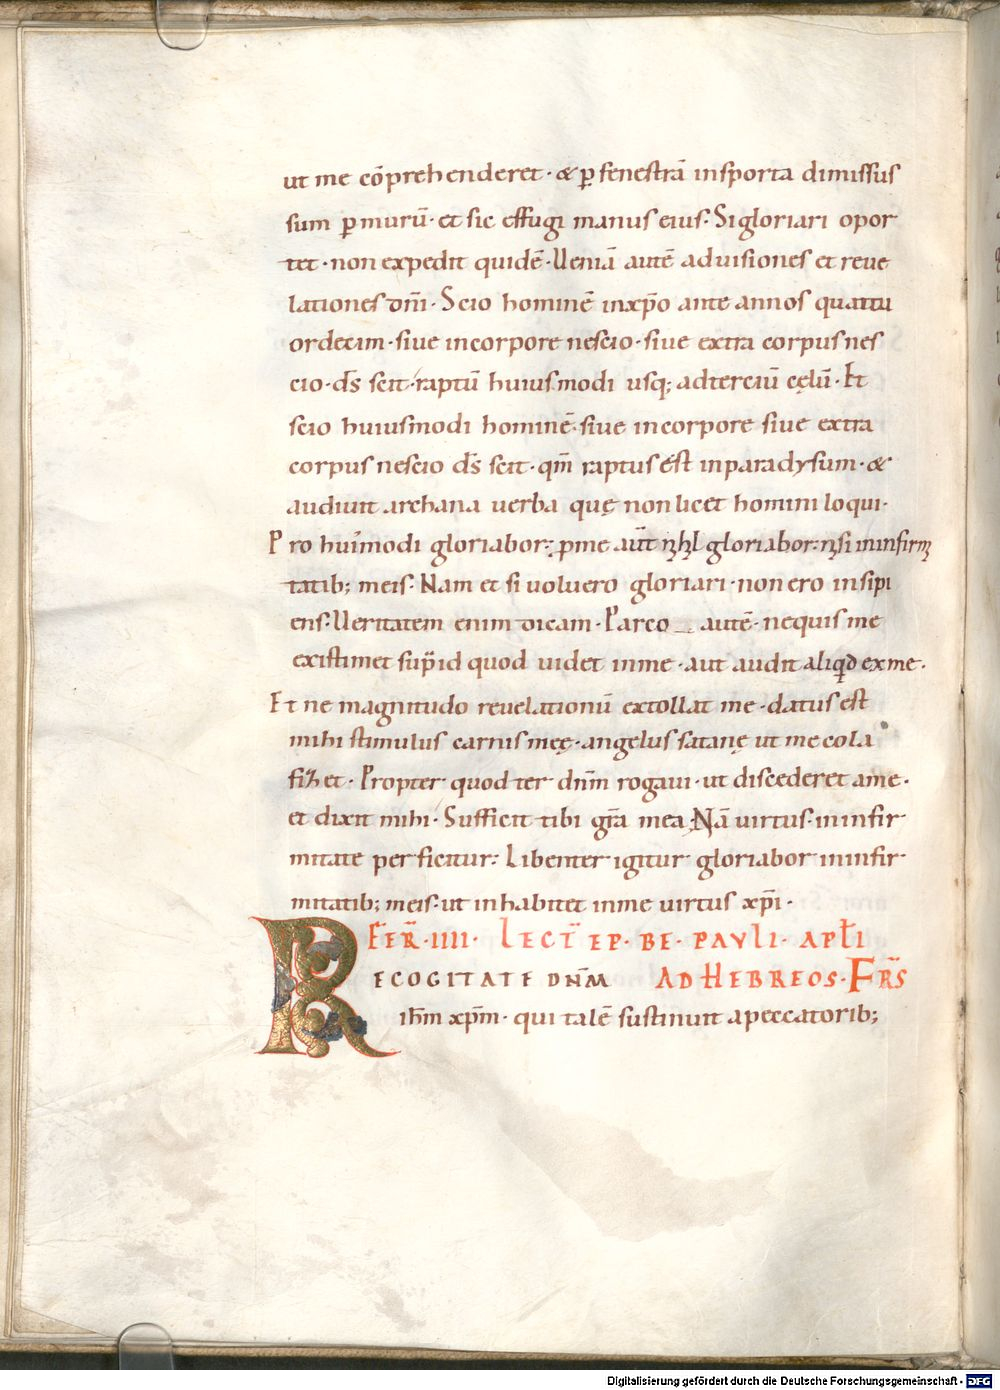 ut me cōprehenderet · & ꝑ fenestrā insporta dimissus
sum ꝑ murū · et sic effugi manus eius · Si gloriari opor
tet · non expedit quidē · Ueniā autē ad uisiones et reue
lationes dn̄i · Scio hominē inxp̄o ante annos quattu
ordecim · siue incorpore nescio · siue extra corpus nes
cio · ds̄ scit · raptū huiusmodi usq; ad terciū cęlū · Et
scio huiusmodi hominē · siue incorpore siue extra
corpus nescio ds̄ scit · qm̄ raptus est inparadysum · &
audiuit archana uerba quę non licet homini loqui ·
Pro hui᷒modi gloriabor : pme aut̄ nihil gloriabor : nisi ininfirmi
tatib; meis · Nam et si uoluero gloriari · non ero insipi
ens · Ueritatem enim dicam · Parco autē · nequis me
existimet sup̄ id quod uidet inme · aut audit aliqd exme ·
Et ne magnitudo reuelationū extollat me · datus est
mihi stimulus carnis męę · angelus satanę ut me cola
fizet · Propter quod ter dnm̄ rogaui · ut discederet ame ·
et dixit mihi · Sufficit tibi gr̄a mea Nā uirtus · ininfir
mitate perficitur : Libenter igitur gloriabor ininfir
mitatib; meis · ut inhabitet inme uirtus xp̄i ·
FER̄ · IIII · LECT̄ EP · BE · PAULI · APL̄I
RECOGITATE DNM̄ AD HEBREOS · FRS̄
ihm̄ xpm̄ · qui talē sustinuit apeccatorib;
Digitalisierung gefördert durch die Deutsche Forschungsgemeinschaft - DFG